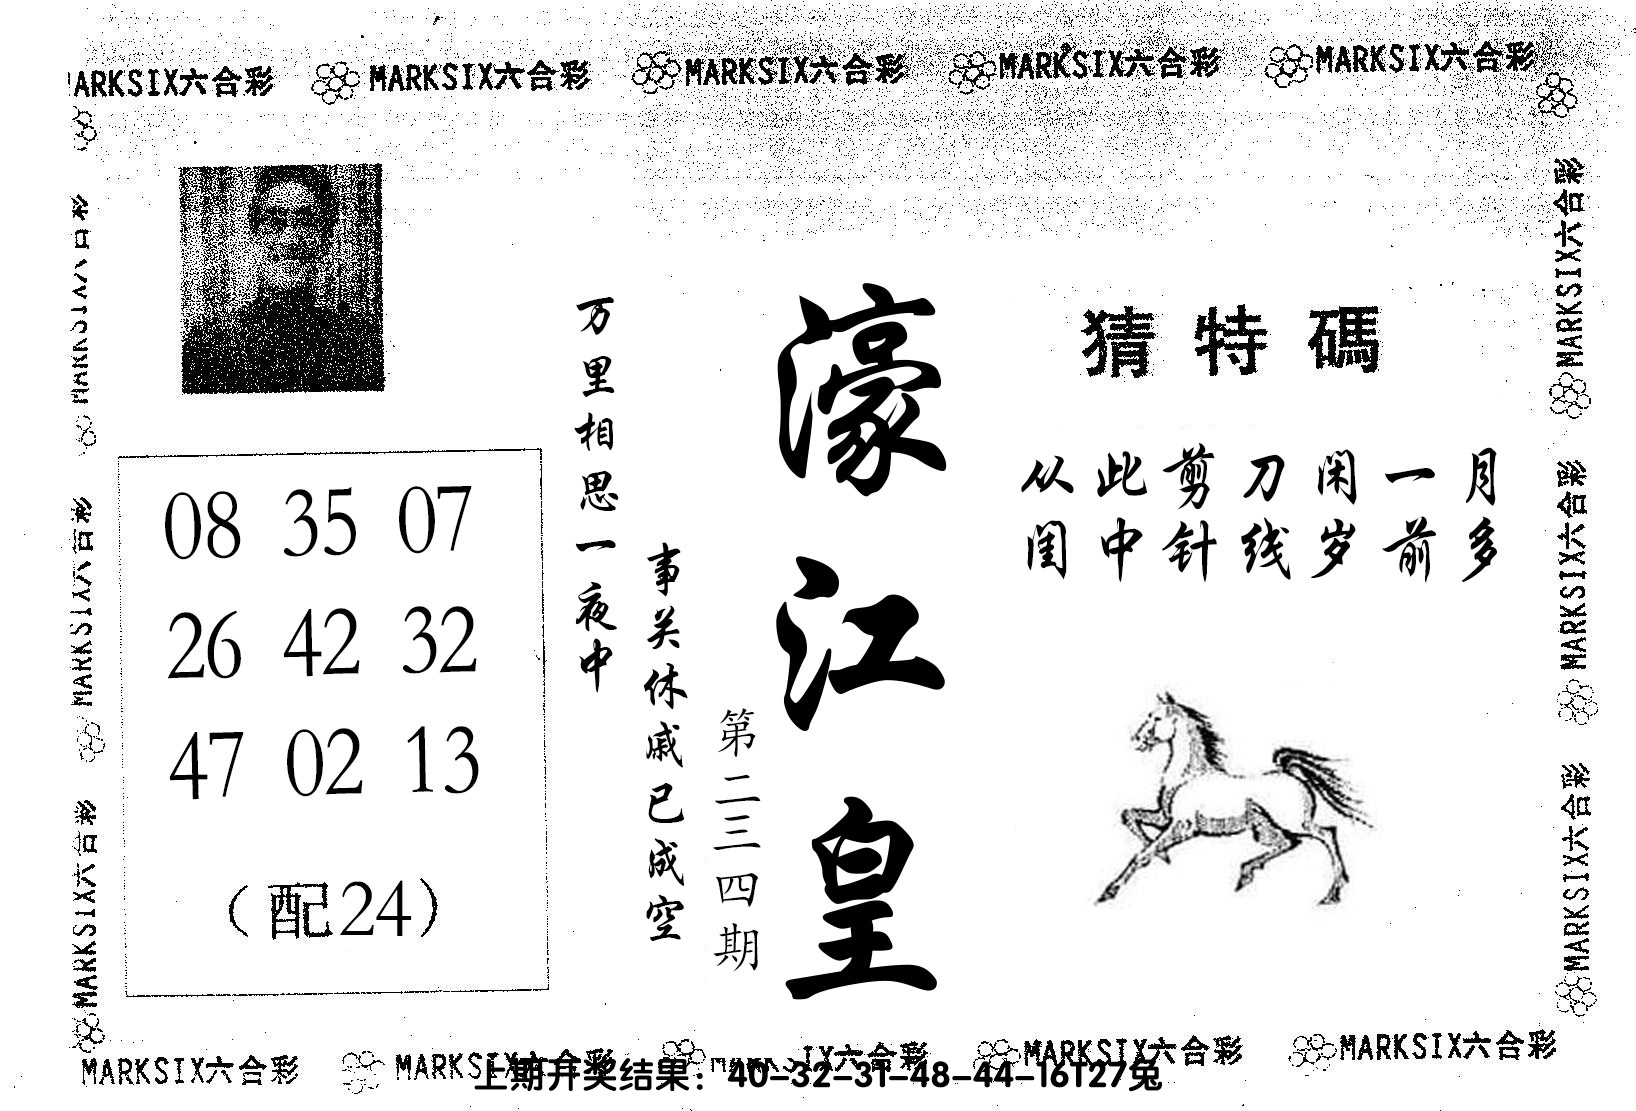 MARKSIX六合彩 MARKSIX六合彩 MARKSIX六合彩 MARKSIX六合彩 MARKSIX六合彩
濠江皇
第二三四期
猜特碼
从此剪刀闲一月
闺中针线岁前多
万里相思一夜中
事关休戚已成空
08 35 07
26 42 32
47 02 13
（配24）
MARKSIX六合彩
MARKSIX六合彩
MARKSIX六合彩
MARKSIX六合彩
MARKSIX六合彩
MARKSIX六合彩
MARKSIX六合彩 MARKSIX六合彩 MARKSIX六合彩 MARKSIX六合彩
上期开奖结果：40-32-31-48-44-16T27兔